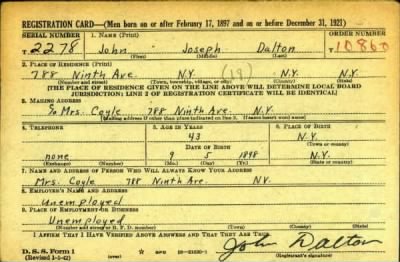 REGISTRATION CARD—(Men born on or after February 17, 1897 and on or before December 31, 1921)
SERIAL NUMBER 1. NAME (Print) ORDER NUMBER
T 2278 John Joseph Dalton T 10860
(First) (Middle) (Last)
2. PLACE OF RESIDENCE (Print)
788 Ninth Ave. N.Y. (19) N.Y.
(Number and street) (Town, township, village, or city) (County) (State)
[THE PLACE OF RESIDENCE GIVEN ON THE LINE ABOVE WILL DETERMINE LOCAL BOARD
JURISDICTION; LINE 2 OF REGISTRATION CERTIFICATE WILL BE IDENTICAL]
3. MAILING ADDRESS
c/o Mrs. Coyle 788 Ninth Ave. N.Y.
[Mailing address if other than place indicated on line 2. If same insert word same]
4. TELEPHONE 5. AGE IN YEARS 6. PLACE OF BIRTH
43 N.Y.
DATE OF BIRTH (Town or county)
none 9 5 1898 N.Y.
(Exchange) (Number) (Mo.) (Day) (Yr.) (State or country)
7. NAME AND ADDRESS OF PERSON WHO WILL ALWAYS KNOW YOUR ADDRESS
Mrs. Coyle 788 Ninth Ave. N.Y.
8. EMPLOYER'S NAME AND ADDRESS
Unemployed
9. PLACE OF EMPLOYMENT OR BUSINESS
Unemployed
(Number and street or R. F. D. number) (Town) (County) (State)
I AFFIRM THAT I HAVE VERIFIED ABOVE ANSWERS AND THAT THEY ARE TRUE.
D. S. S. Form 1 GPO John Dalton
(Revised 1-1-42) (Registrant's signature)